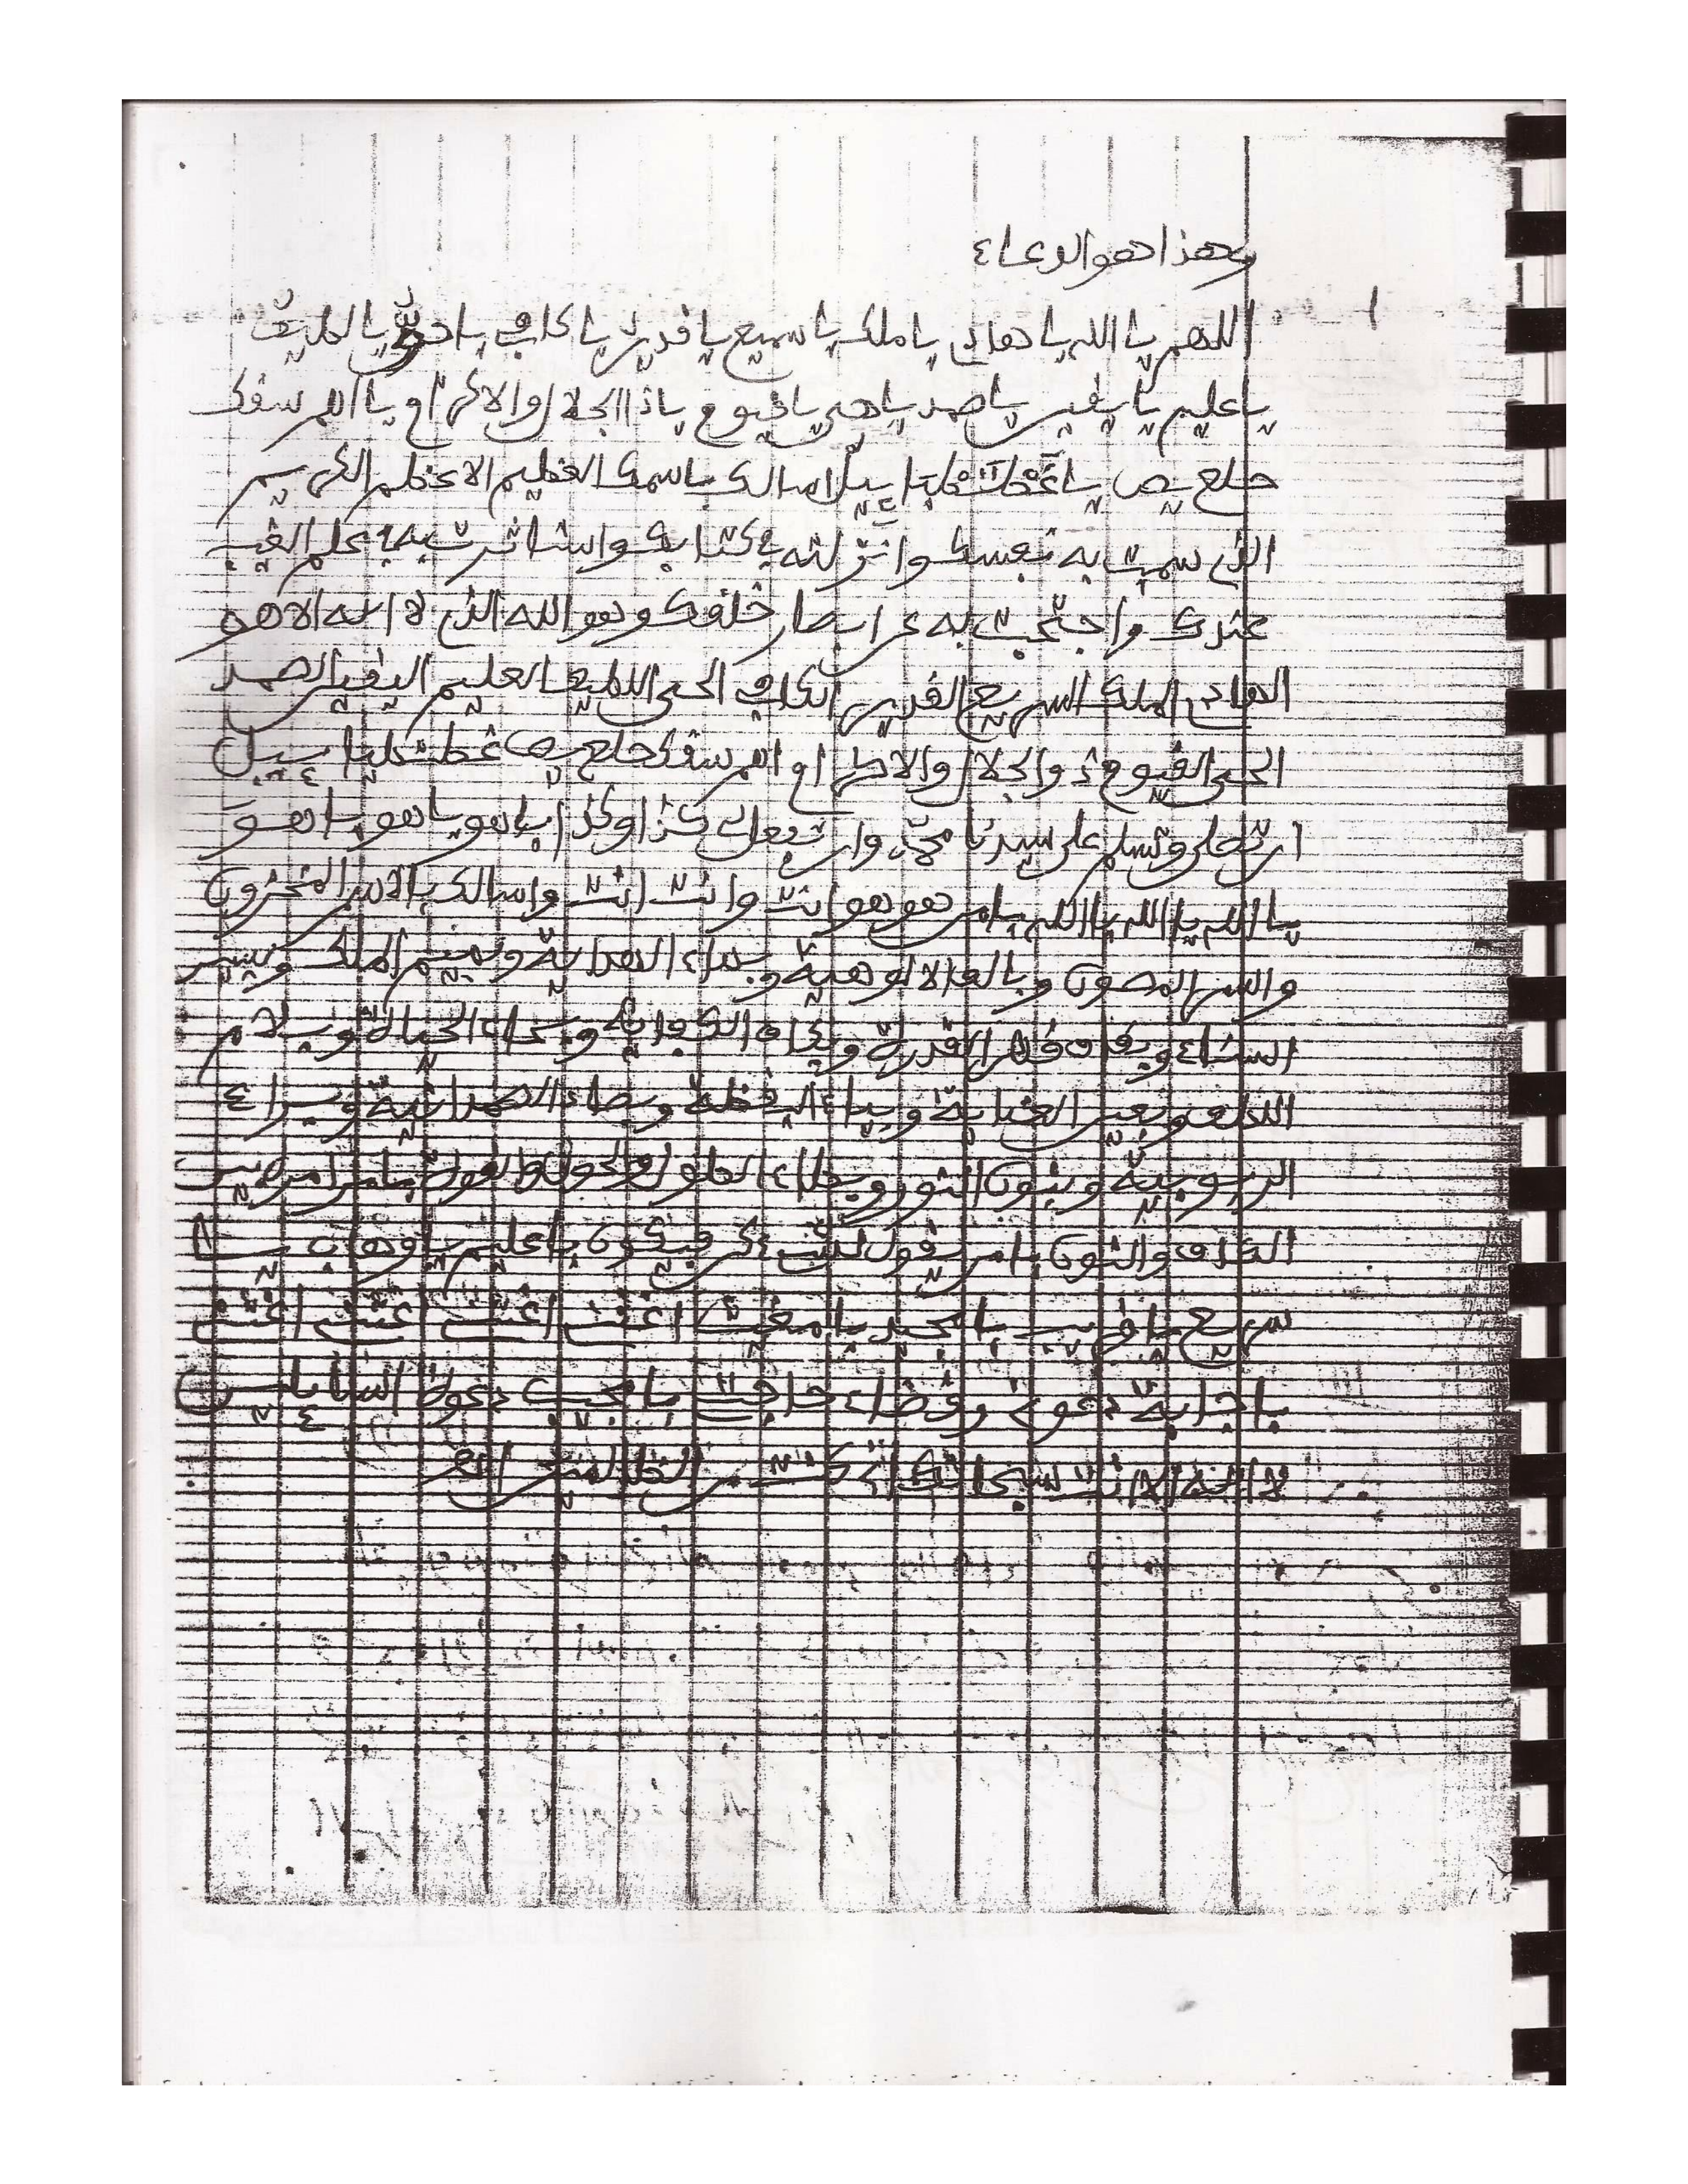 وهذا هو الدعاء
اللهم يا الله يا هادي يا ملك يا سميع يا قدير يا كافي يا حي يا لطيف
يا عليم يا يا صمد يا حي يا قيوم يا ذا الجلال والاكرام يا الم سقك
حلع يص يا اسالك باسمك العظيم الاعظم الكريم
الذي سميت به نفسك وانزلته في كتابك واستاثرت به في علم الغيب
عندك واحتجبت به عن ابصار خلقك وهو الله الذي لا اله الا هو
الهادي الملك السريع القدير الكافي الحي اللطيف العليم الصمد
الحي القيوم ذو الجلال والاكرام الم سقك حلع يص
ان تصلي وتسلم على سيدنا محمد وان تجعل لي كذا وكذا يا هو يا هو يا هو
يا الله يا الله يا الله يا من هو هو وانت وانت انت واسالك بالاسم المخزون
والسر المصون وبالف الالوهية وبهاء الهداية وبميم الملك وبسين
السناء وبقاف القدرة وبكاف الكفاية وبحاء الحياة وبلام
اللطف وبعين العناية وبياء اليقظة وبصاد الصمدانية وبراء
الربوبية وبنون النور وبطاء الطول والحول والقوة يا من امره بين
الكاف والنون يا من يقول لشيء كن فيكون يا عليم يا وهاب يا
سريع يا قريب يا مجيد يا مغيث اغثني اغثني اغثني اغثني
باجابة دعوتي وقضاء حاجتي يا مجيب دعوة السائلين
لا اله الا انت سبحانك اني كنت من الظالمين